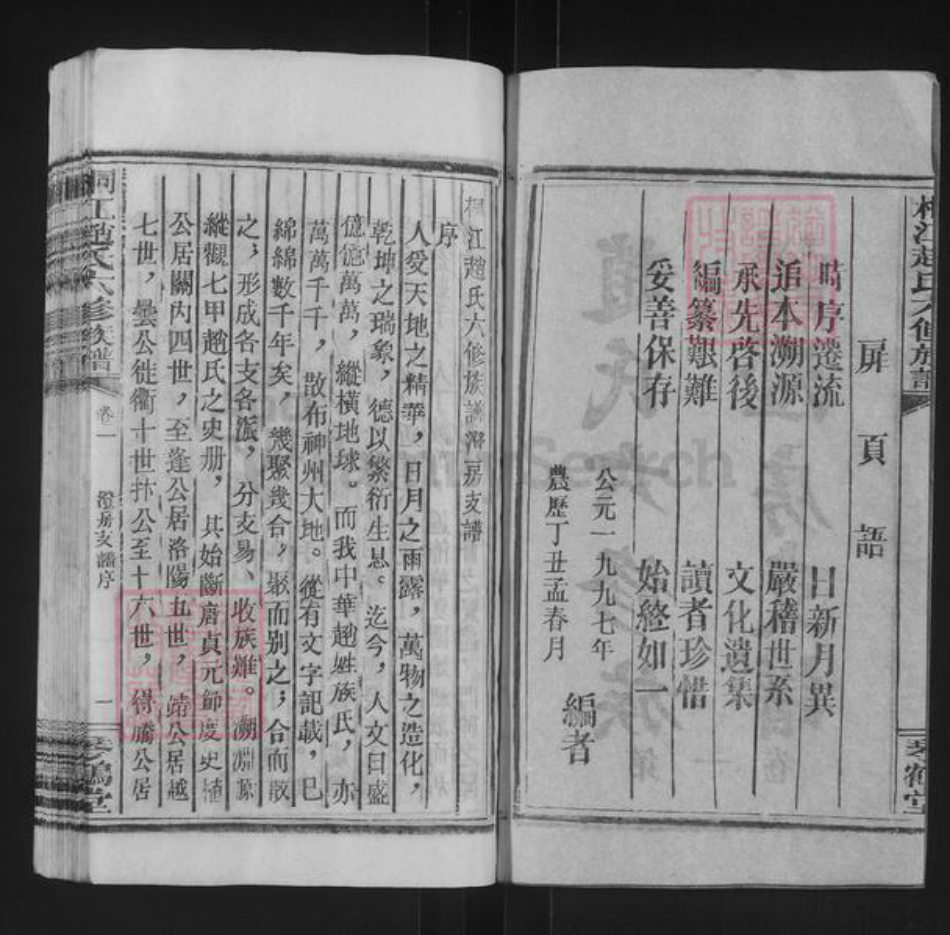 扉頁語
時序遷流 日新月異
追本溯源 嚴稽世系
承先啓後 文化遺集
編纂艱難 讀者珍惜
妥善保存 始終如一
公元一九九七年
農歷丁丑孟春月
編者
桐江趙氏六修族譜澄房支譜
序
人爰天地之精華，日月之雨露，萬物之造化，
乾坤之瑞象，德以繁衍生息。迄今，人文日盛
億億萬萬，縱橫地球。而我中華趙姓族氏，亦
萬萬千千，散布神州大地。從有文字記載，已
綿綿數千年矣，幾聚幾合，聚而别之；合而散
之，形成各支各派，分支易、收族難。溯淵源
縱觀七甲趙氏之史册，其始斷唐貞元師度史植
公居關内四世，至逢公居洛陽五世，靖公居越
七世，曇公徙衢十世抃公至十六世，得驕公居
桐江趙氏六修族譜
卷一
澄房支譜序
一
琴鶴堂